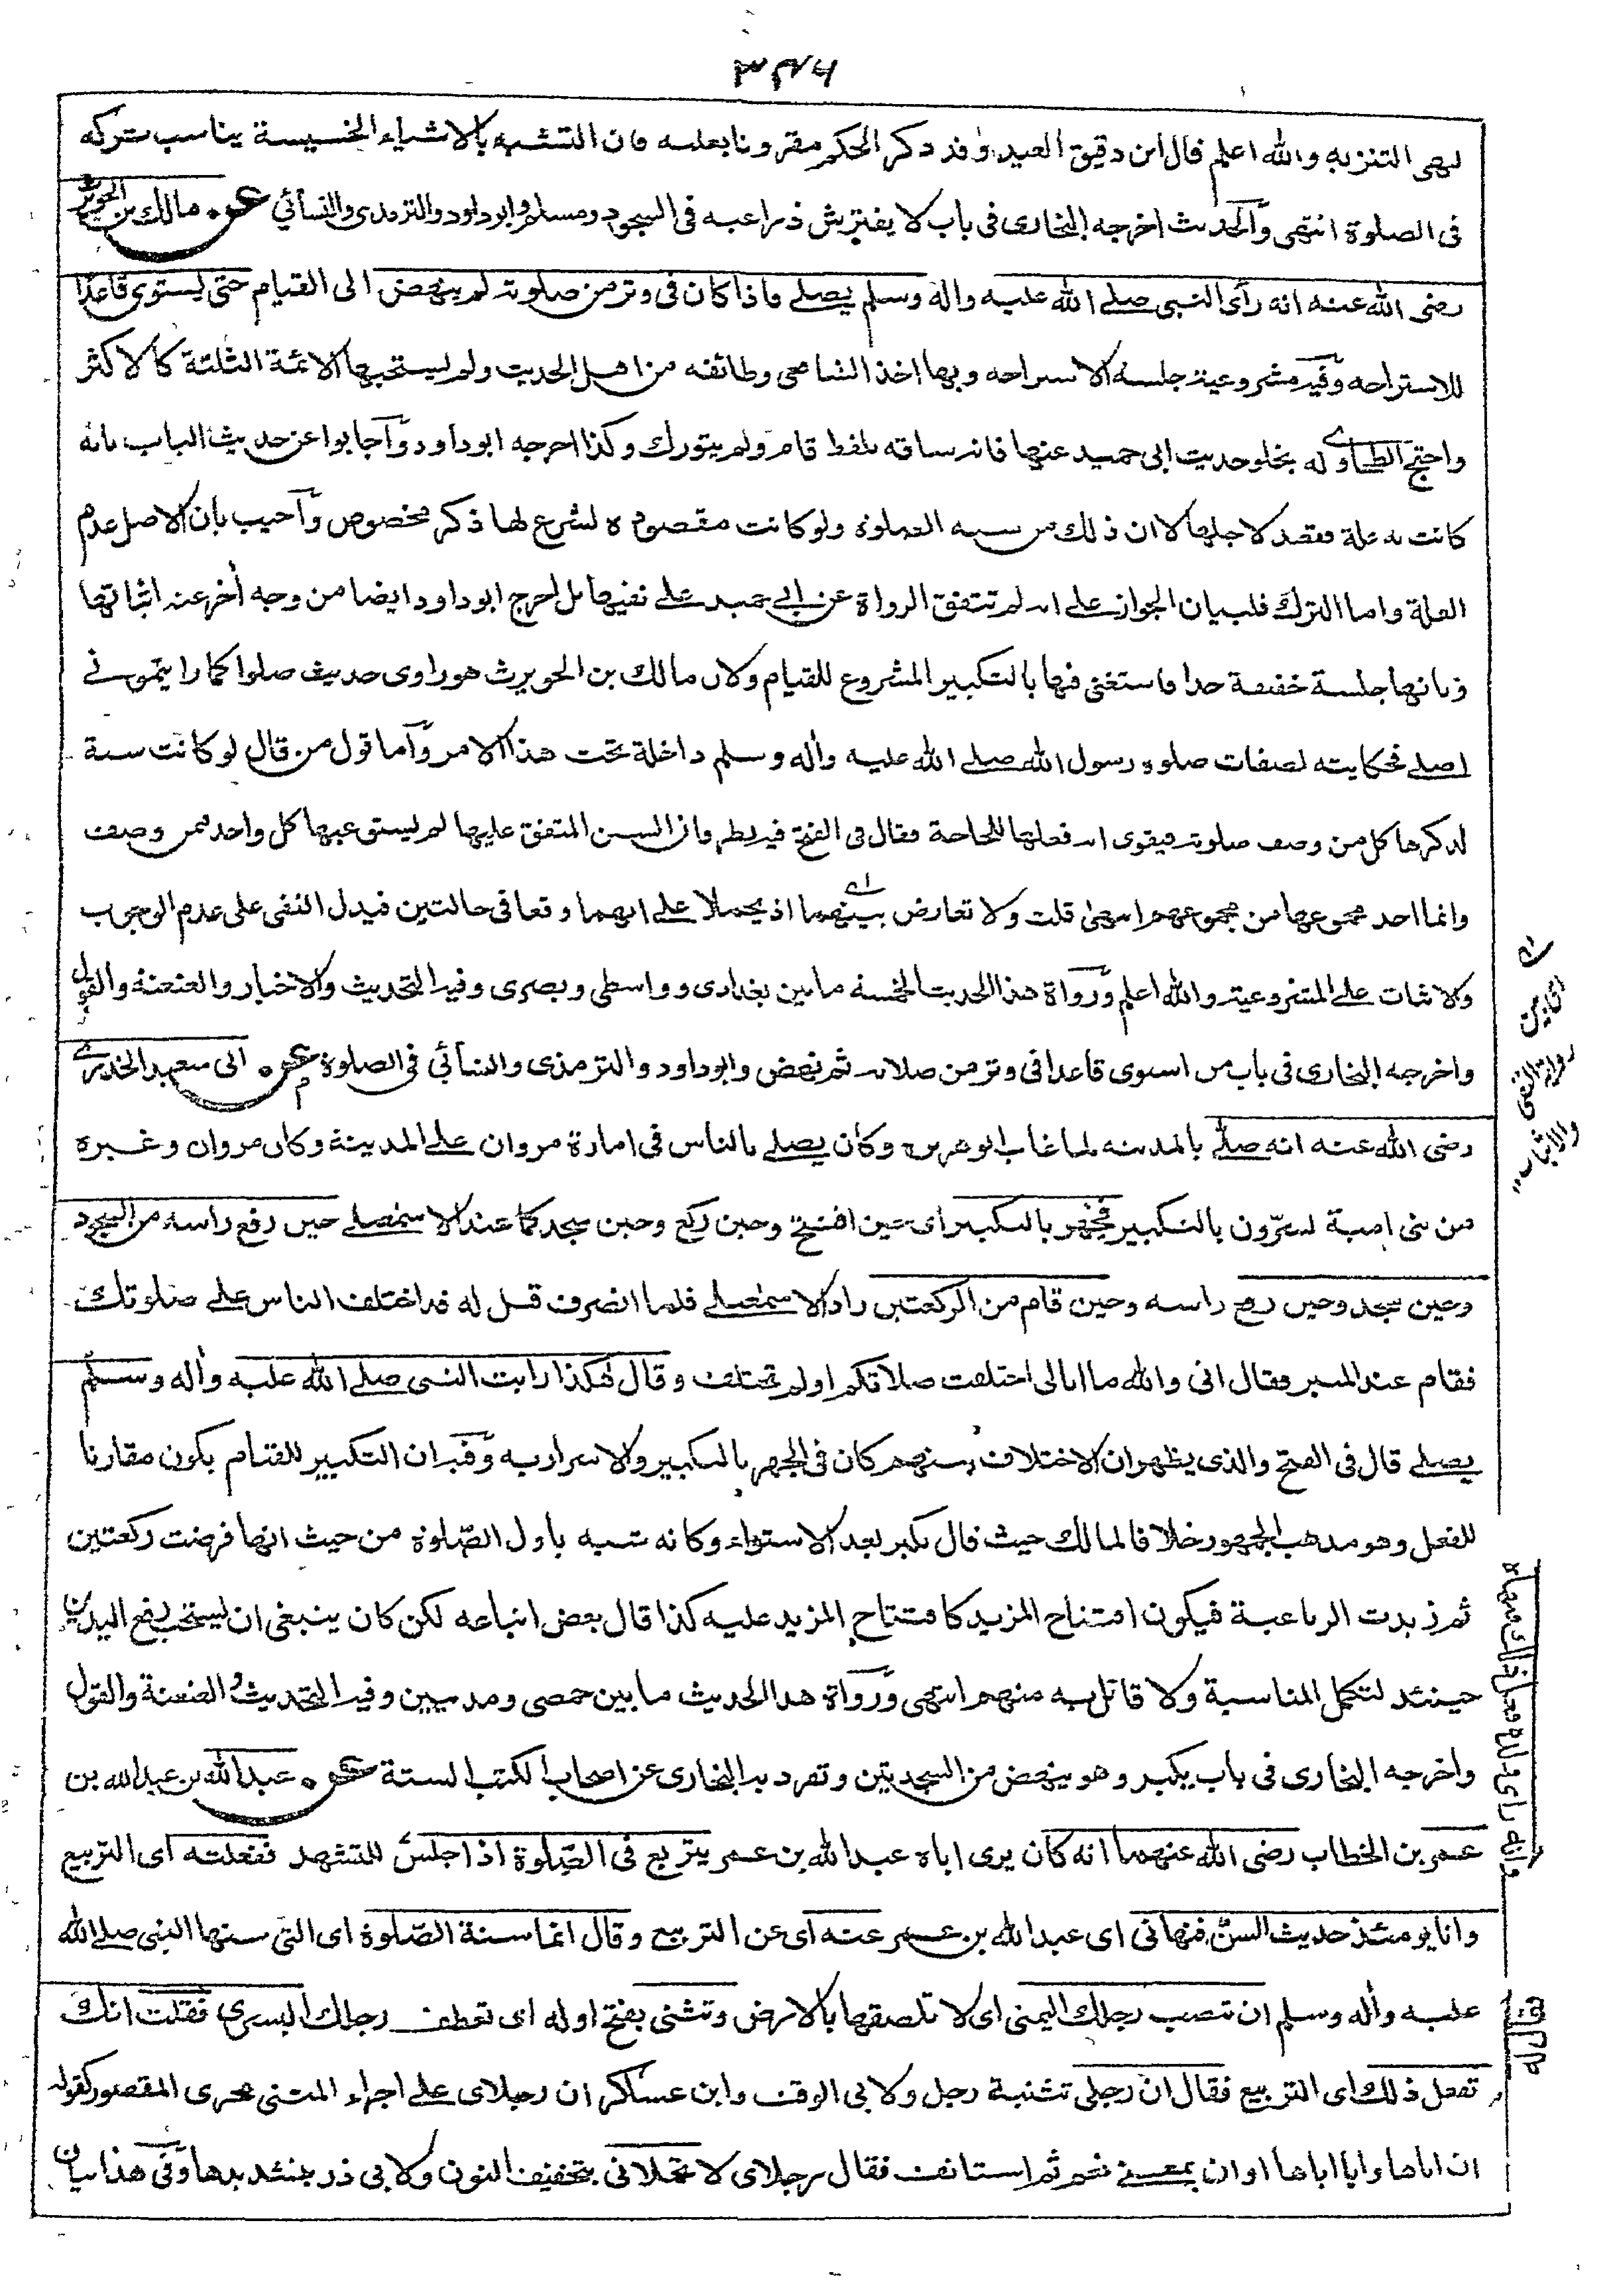 ٣٤٦
لنهى التنزيه والله اعلم قال ابن دقيق العيد وقد ذكر الحكم مقرونا بعلته فان التشبه بالاشياء الخسيسة يناسب تركه
فى الصلوة انتهى والحديث اخرجه البخارى فى باب لا يفترش ذراعيه فى السجود ومسلم وابو داود والترمذى والنسائي عن مالك بن الحويرث
رضى الله عنه انه رأى النبى صلے الله عليه واله وسلم يصلے فاذا كان فى وتر من صلوته لم ينهض الى القيام حتى يستوى قاعدا
للاستراحه وفيه مشروعية جلسة الاستراحه وبها اخذ الشافعى وطائفه من اهل الحديث ولم يستحبها الائمة الثلثة كالاكثر
واحتج الطحاوے له بخلو حديث ابى حميد عنها فانه ساقه بلفظ قام ولم يتورك وكذا اخرجه ابو داود وأجابوا عن حديث الباب بانه
كانت به علة فقعد لاجلها لا ان ذلك من سنة الصلوة ولو كانت مقصودة لشرع لها ذكر مخصوص وأجيب بان الاصل عدم
العلة واما الترك فلبيان الجواز على انه لم تتفق الرواة عن ابي حميد على نفيها بل اخرج ابو داود ايضا من وجه أخر عنه اثباتها
وبانها جلسة خفيفة جدا فاستغنى فيها بالتكبير المشروع للقيام ولان مالك بن الحويرث هو راوى حديث صلوا كما رايتمونے
اصلے فحكايته لصفات صلوة رسول الله صلے الله عليه وأله وسلم داخلة تحت هذا الامر وأما قول من قال لو كانت سنة
لذكرها كل من وصف صلوته فيقوى انه فعلها للحاجة فقال فى الفتح فيه نظر فان السنن المتفق عليها لم يستوعبها كل واحد ممن وصف
وانما اخذ مجموعها من مجموعهم انتهى قلت ولا تعارض بينهما اذ يحملا على انهما وقعا فى حالتين فيدل النفى على عدم الوجوب
والاثبات على المشروعية والله اعلم ورواة هذا الحديث الخمسة ما بين بغدادى وواسطى وبصرى وفيه التحديث والاخبار والعنعنة والقول
واخرجه البخارى فى باب من استوى قاعدا فى وتر من صلاته ثم نهض وابو داود والترمذى والنسائي فى الصلوة عن ابى سعيد الخدرے
رضى الله عنه انه صلے بالمدينه لما غاب ابو هريرة وكان يصلے بالناس فى امارة مروان على المدينة وكان مروان وغيره
من بنى امية يسرّون بالتكبير فجهر بالتكبير اى حين افتتح وحين ركع وحين سجد كما عند الاسمعيلے حين رفع راسه من السجود
وحين سجد وحين رفع راسه وحين قام من الركعتين زاد الاسمعيلے فلما انصرف قيل له قد اختلف الناس على صلوتك
فقام عند المنبر فقال انى والله ما ابالى اختلفت صلاتكم اولم تختلف وقال هكذا رايت النبى صلے الله عليه وأله وسلم
يصلے قال فى الفتح والذى يظهر ان الاختلاف بينهم كان فى الجهر بالتكبير والاسرار به وفيه ان التكبير للقيام يكون مقارنا
للفعل وهو مذهب الجمهور خلافا لمالك حيث قال يكبر بعد الاستواء وكانه شبه باول الصّلوة من حيث انها فرضت ركعتين
ثم زيدت الرباعية فيكون افتتاح المزيد كافتتاح المزيد عليه كذا قال بعض اتباعه لكن كان ينبغى ان يستحب رفع اليدين
حينئذ لتكمل المناسبة ولا قائل به منهم انتهى ورواة هذا الحديث ما بين حمصى ومدنيين وفيه التحديث والعنعنة والقول
واخرجه البخارى فى باب يكبر وهو ينهض من السجدتين وتفرد به البخارى عن اصحاب الكتب الستة عن عبد الله بن عبد الله بن
عمر بن الخطاب رضى الله عنهما انه كان يرى اباه عبد الله بن عمر يتربع فى الصّلوة اذا جلس للتشهد ففعلته اى التربيع
وانا يومئذ حديث السنّ فنهانى اى عبد الله بن عمر عنه اى عن التربيع وقال انما سنة الصّلوة اى التى سنها النبى صلے الله
عليه وأله وسلم ان تنصب رجلك اليمنى اى لا تلصقها بالارض وتثنى بفتح اوله اى تعطف رجلك اليسرى فقلت انك
تفعل ذلك اى التربيع فقال ان رجلى تثنية رجل ولابى الوقت وابن عساكر ان رجلاى على اجراء المثنى مجرى المقصور كقوله
ان اباها وابا اباها اوان بمعنے نعم ثم استانف فقال رجلاى لا تحملانى بتخفيف النون ولابى ذر بتشديدها وفى هذا بيان
اى بين
رواية النفى
والاثبات